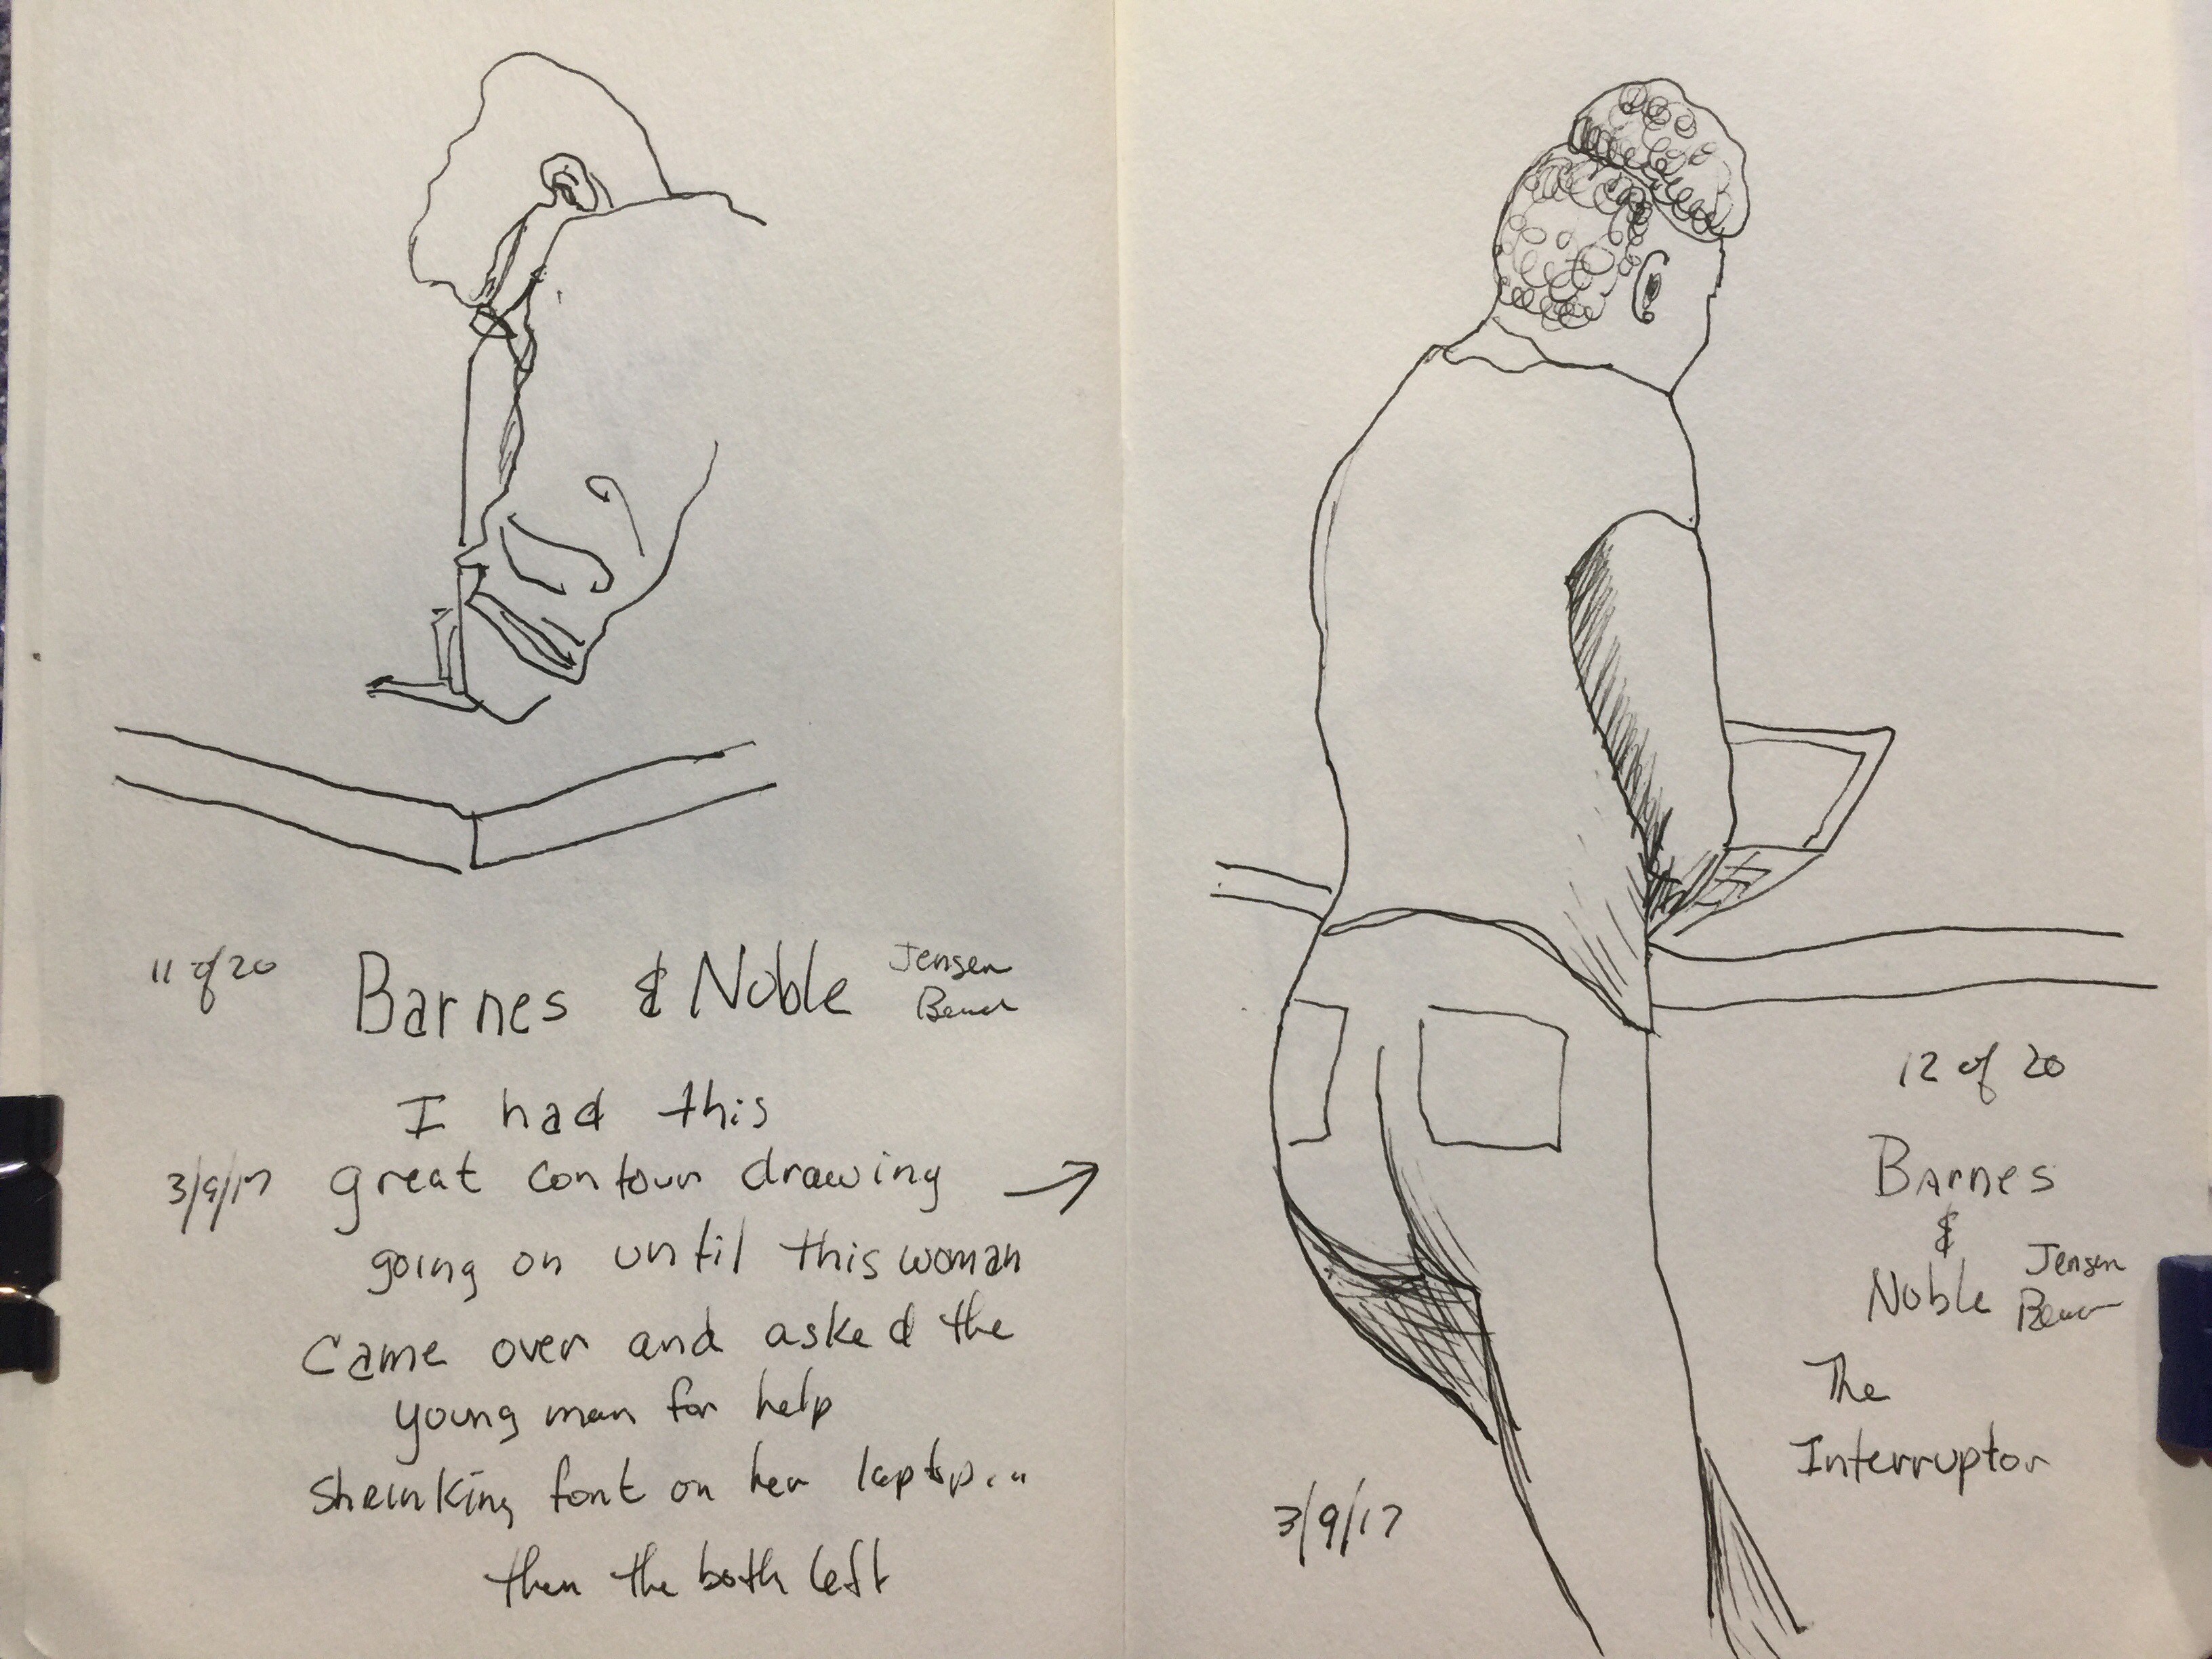 11 of 20 Barnes & Noble Jensen Beach
I had this
3/9/17 great contour drawing →
going on until this woman
came over and asked the
young man for help
shrinking font on her laptop...
then the both left
12 of 20
Barnes
&
Noble Jensen Beach
The
Interruptor
3/9/17